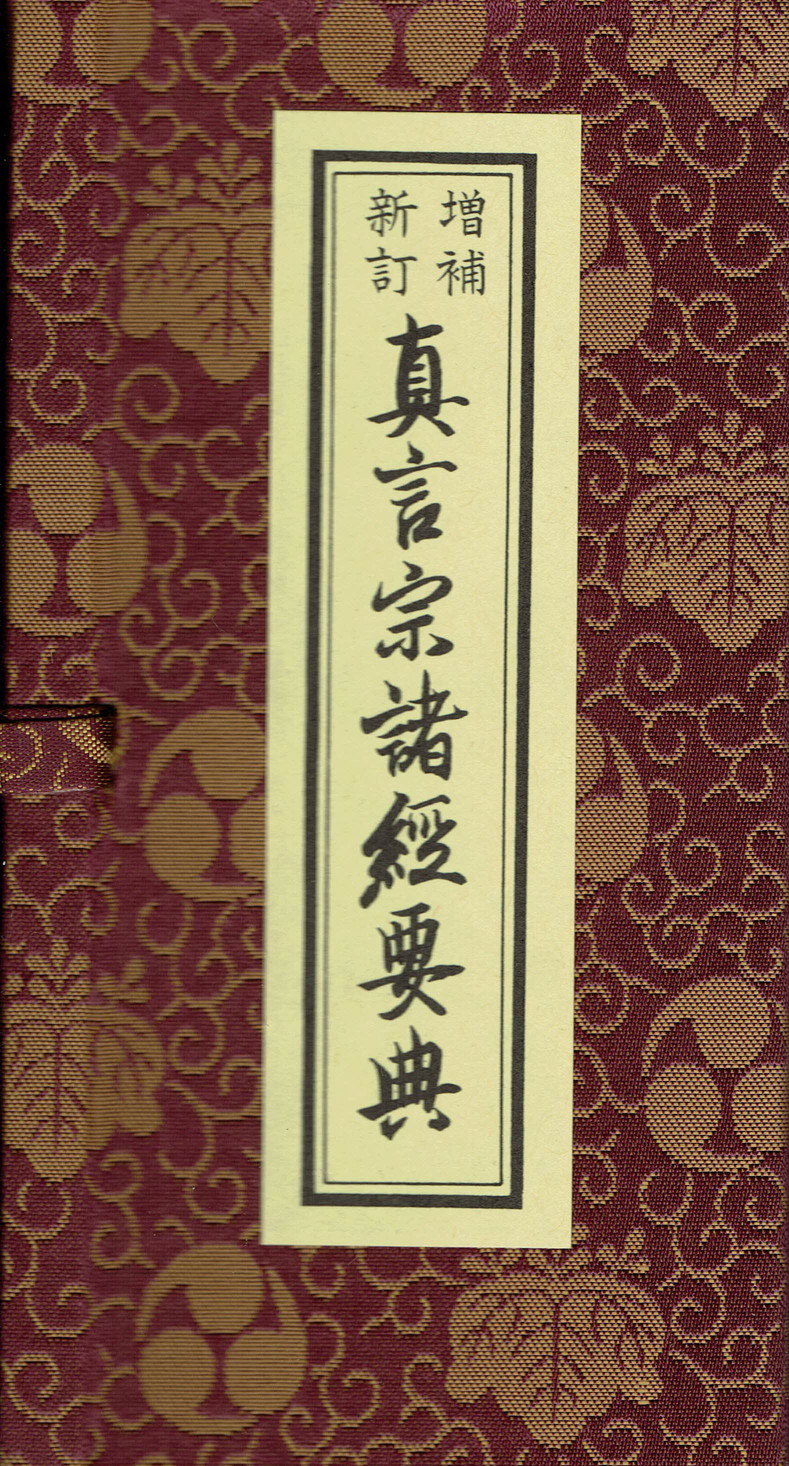 増補
新訂
真言宗諸經要典